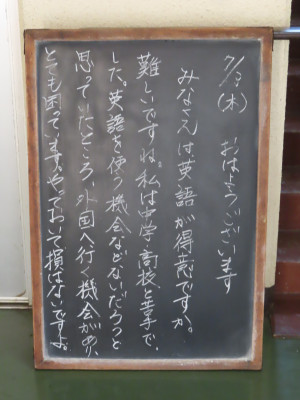 7/3（木）　おはようございます
みなさんは英語が得意ですか。
難しいですね。私は中学、高校と苦手で
した。英語を使う機会などないだろうと
思っていたところ、外国へ行く機会があり、
とても困っています。やっておいて損はないですよ。